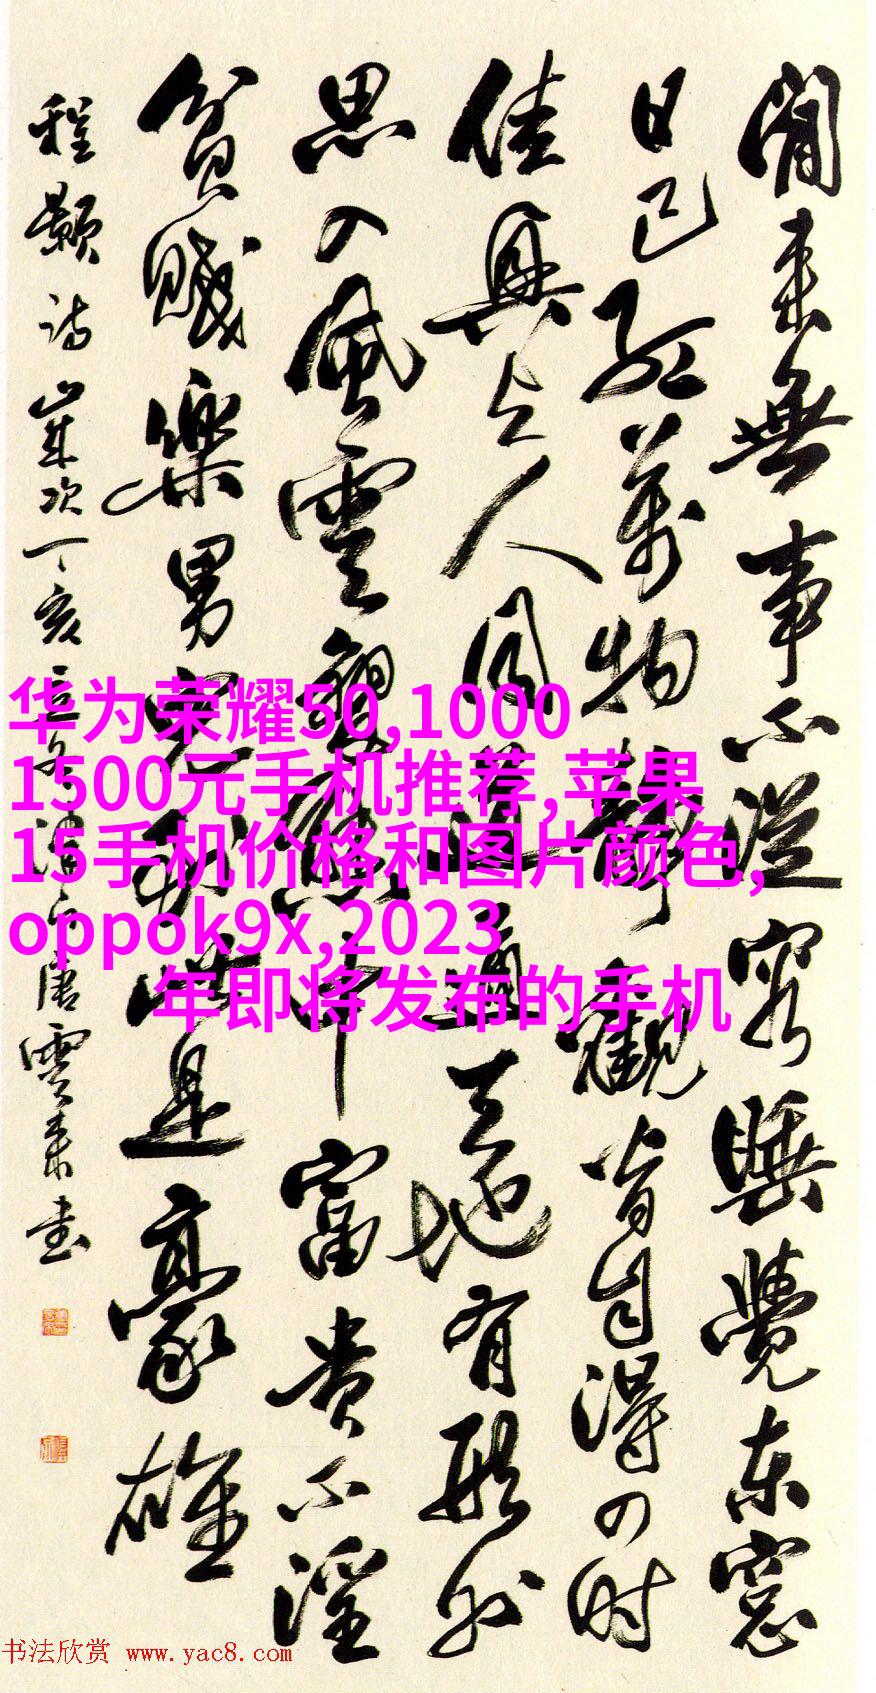 閒来無事不從容睡覺东窓
日已紅萬物靜觀皆自得四时
佳興与人同道通天地有形外
思入風雲變態中富貴不淫
貧賤樂男兒到此是豪雄
程颢诗歲次丁亥津门唐雲来书
华为荣耀50,1000
1500元手机推荐,苹果
15手机价格和图片颜色,
oppok9x,2023
年即将发布的手机
书法欣赏 www.yac8.com